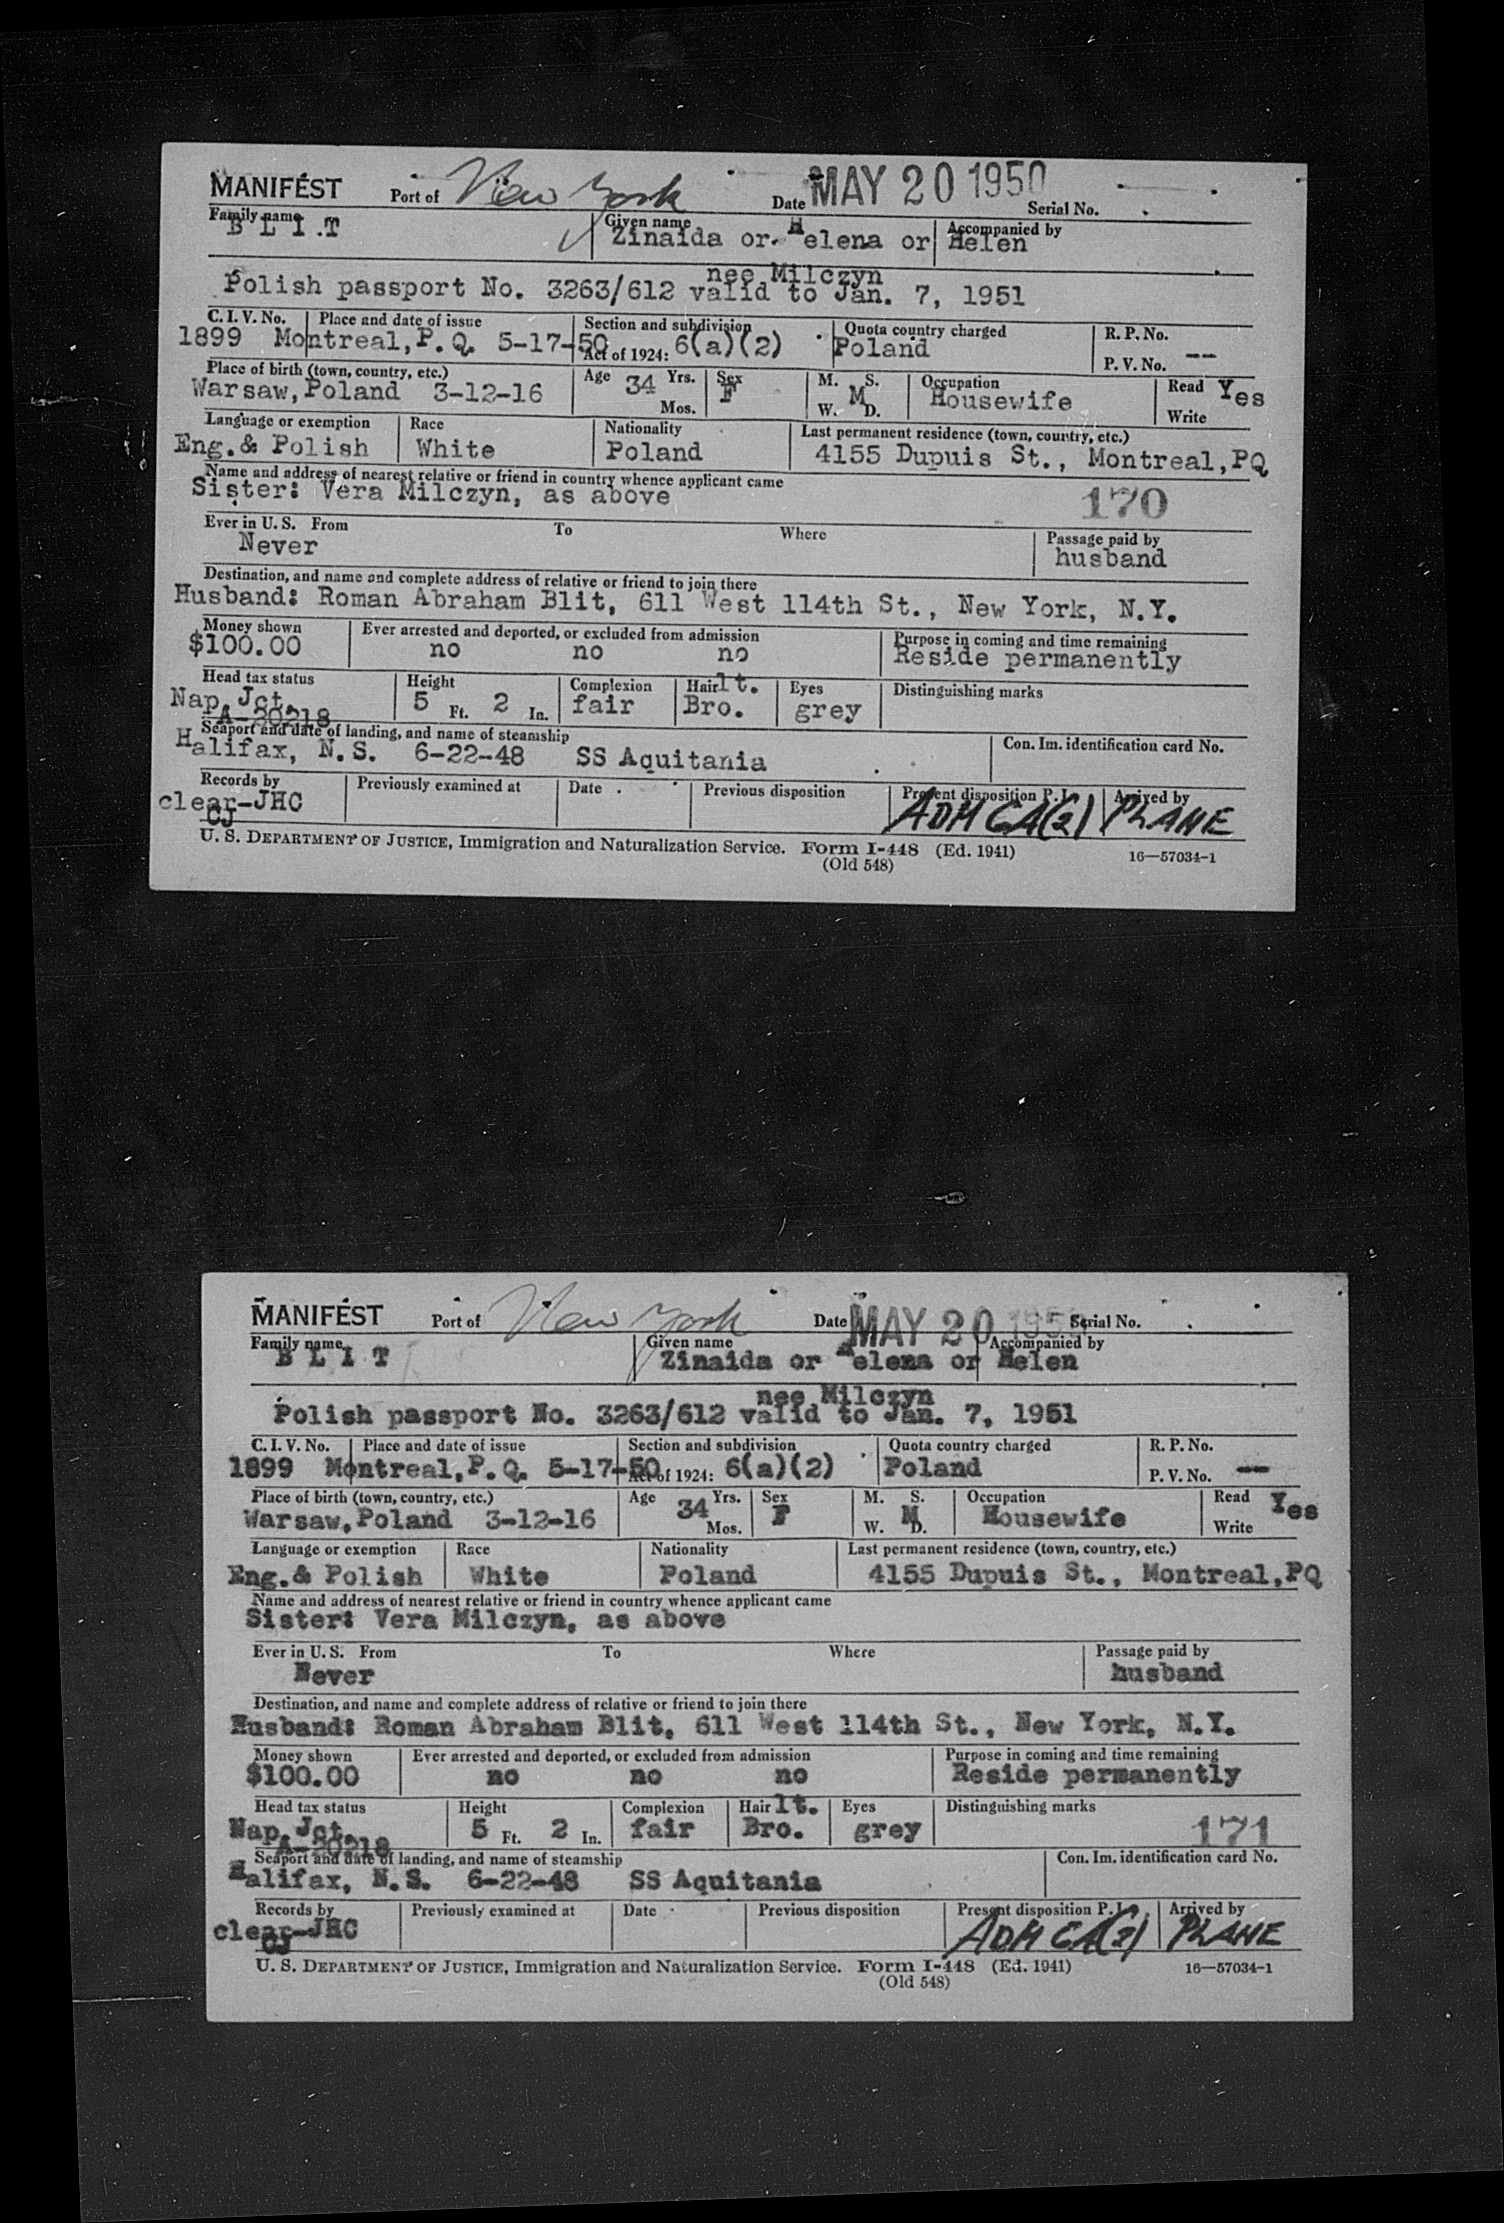 MANIFEST Port of New York Date MAY 20 1950 Serial No.
Family name Given name Accompanied by
B L I T Zinaida or Helena or Helen
nee Milczyn
Polish passport No. 3263/612 valid to Jan. 7, 1951
C. I. V. No. Place and date of issue Section and subdivision Quota country charged R. P. No.
1899 Montreal, P. Q. 5-17-50 Act of 1924: 6(a)(2) Poland P. V. No. --
Place of birth (town, country, etc.) Age 34 Yrs. Mos. Sex M. S. W. D. Occupation Read Write
Warsaw, Poland 3-12-16 F M Housewife Yes
Language or exemption Race Nationality Last permanent residence (town, country, etc.)
Eng. & Polish White Poland 4155 Dupuis St., Montreal, PQ
Name and address of nearest relative or friend in country whence applicant came
Sister: Vera Milczyn, as above 170
Ever in U. S. From To Where Passage paid by
Never husband
Destination, and name and complete address of relative or friend to join there
Husband: Roman Abraham Blit, 611 West 114th St., New York, N.Y.
Money shown Ever arrested and deported, or excluded from admission Purpose in coming and time remaining
$100.00 no no no Reside permanently
Head tax status Height Complexion Hair lt. Eyes Distinguishing marks
Nap. Jct. 5 Ft. 2 In. fair Bro. grey
A-20218
Seaport and date of landing, and name of steamship Con. Im. identification card No.
Halifax, N.S. 6-22-48 SS Aquitania
Records by Previously examined at Date Previous disposition Present disposition P. I. Arrived by
clear-JHC ADM GA(2) PLANE
CJ
U. S. DEPARTMENT OF JUSTICE, Immigration and Naturalization Service. Form I-448 (Ed. 1941) 16—57034-1
(Old 548)
MANIFEST Port of New York Date MAY 20 195 Serial No.
Family name Given name Accompanied by
B L I T Zinaida or Helena or Helen
nee Milczyn
Polish passport No. 3263/612 valid to Jan. 7, 1951
C. I. V. No. Place and date of issue Section and subdivision Quota country charged R. P. No.
1899 Montreal, P. Q. 5-17-50 Act of 1924: 6(a)(2) Poland P. V. No. --
Place of birth (town, country, etc.) Age 34 Yrs. Mos. Sex M. S. W. D. Occupation Read Write
Warsaw, Poland 3-12-16 F M Housewife Yes
Language or exemption Race Nationality Last permanent residence (town, country, etc.)
Eng. & Polish White Poland 4155 Dupuis St., Montreal, PQ
Name and address of nearest relative or friend in country whence applicant came
Sister: Vera Milczyn, as above
Ever in U. S. From To Where Passage paid by
Never husband
Destination, and name and complete address of relative or friend to join there
Husband: Roman Abraham Blit, 611 West 114th St., New York, N.Y.
Money shown Ever arrested and deported, or excluded from admission Purpose in coming and time remaining
$100.00 no no no Reside permanently
Head tax status Height Complexion Hair lt. Eyes Distinguishing marks
Nap. Jct. 5 Ft. 2 In. fair Bro. grey 171
A-20218
Seaport and date of landing, and name of steamship Con. Im. identification card No.
Halifax, N.S. 6-22-48 SS Aquitania
Records by Previously examined at Date Previous disposition Present disposition P. I. Arrived by
clear-JHC ADM GA(2) PLANE
CJ
U. S. DEPARTMENT OF JUSTICE, Immigration and Naturalization Service. Form I-448 (Ed. 1941) 16—57034-1
(Old 548)